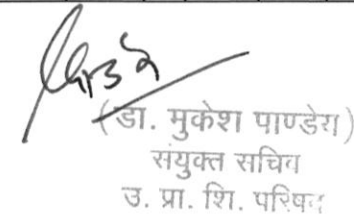 (डा. मुकेश पाण्डेय)
संयुक्त सचिव
उ. प्रा. शि. परिषद